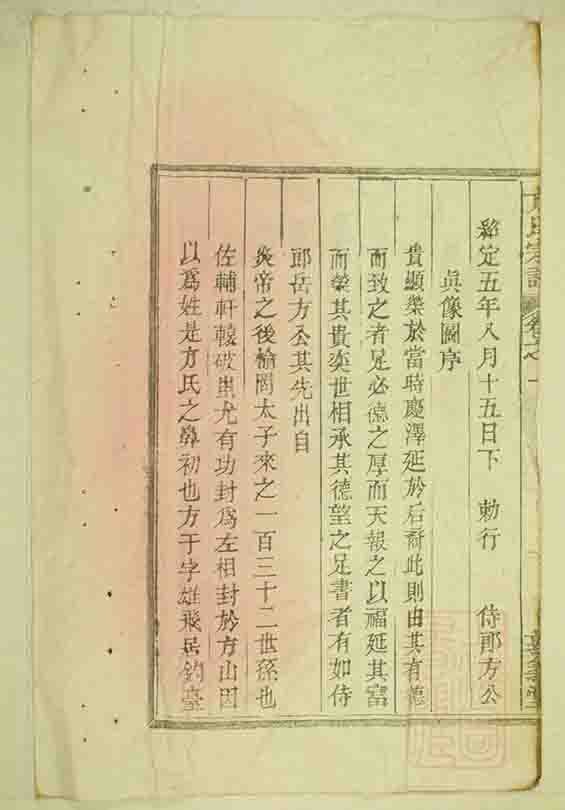 方氏宗譜 卷之一
紹定五年八月十五日下 勅行 侍郎方公
眞像圖序
貴顯榮於當時慶澤延於后裔此則由其有德
而致之者足必德之厚而天報之以福延其富
而榮其貴奕世相承其德望之足書者有如侍
郎岳方公其先出自
炎帝之後榆罔太子來之一百三十二世孫也
佐輔軒轅破蚩尤有功封爲左相封於方山因
以爲姓是方氏之鼻初也方干字雄飛居釣臺